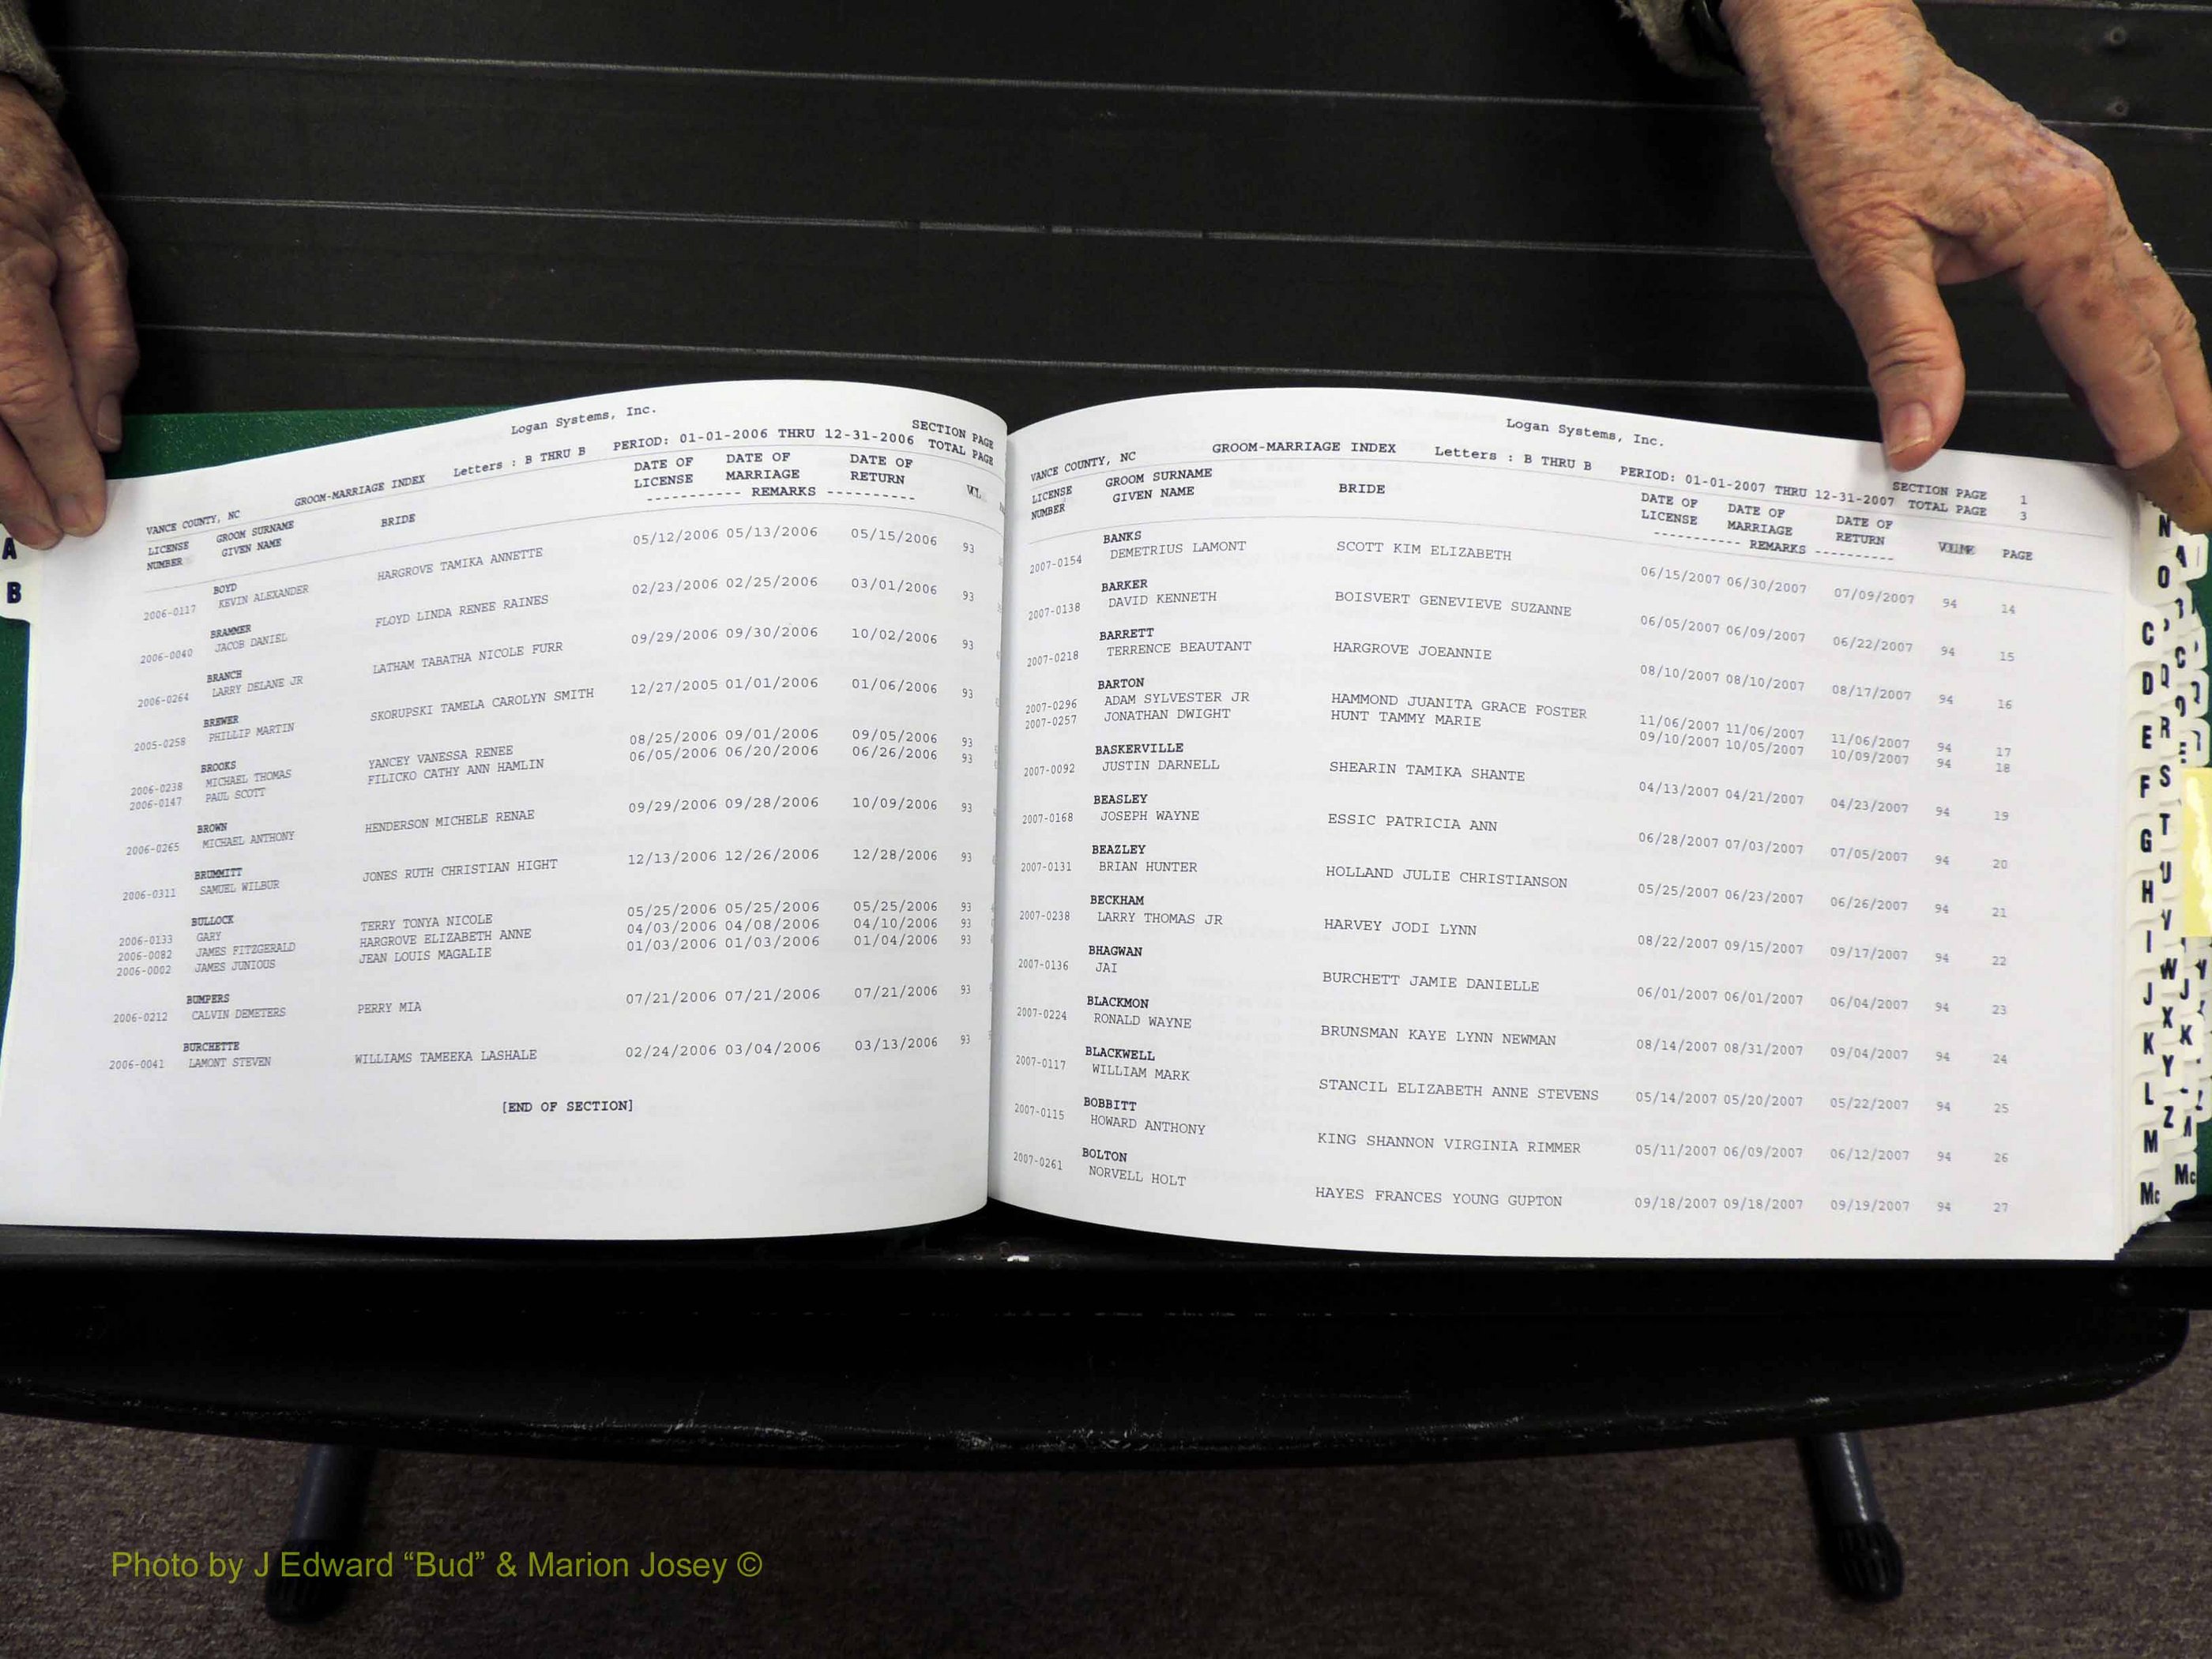 Logan Systems, Inc.
VANCE COUNTY, NC GROOM-MARRIAGE INDEX Letters : B THRU B PERIOD: 01-01-2006 THRU 12-31-2006 SECTION PAGE
TOTAL PAGE
LICENSE NUMBER GROOM SURNAME GIVEN NAME BRIDE DATE OF LICENSE DATE OF MARRIAGE DATE OF RETURN
----------- REMARKS -----------
BOYD
2006-0117 KEVIN ALEXANDER HARGROVE TAMIKA ANNETTE 05/12/2006 05/13/2006 05/15/2006 93
BRAMMER
2006-0040 JACOB DANIEL FLOYD LINDA RENEE RAINES 02/23/2006 02/25/2006 03/01/2006 93
BRANCH
2006-0264 LARRY DELANE JR LATHAM TABATHA NICOLE FURR 09/29/2006 09/30/2006 10/02/2006 93
BREWER
2005-0258 PHILLIP MARTIN SKORUPSKI TAMELA CAROLYN SMITH 12/27/2005 01/01/2006 01/06/2006 93
BROOKS
2006-0238 MICHAEL THOMAS YANCEY VANESSA RENEE 08/25/2006 09/01/2006 09/05/2006 93
2006-0147 PAUL SCOTT FILICKO CATHY ANN HAMLIN 06/05/2006 06/20/2006 06/26/2006 93
BROWN
2006-0265 MICHAEL ANTHONY HENDERSON MICHELE RENAE 09/29/2006 09/28/2006 10/09/2006 93
BRUMMITT
2006-0311 SAMUEL WILBUR JONES RUTH CHRISTIAN HIGHT 12/13/2006 12/26/2006 12/28/2006 93
BULLOCK
2006-0133 GARY TERRY TONYA NICOLE 05/25/2006 05/25/2006 05/25/2006 93
2006-0082 JAMES FITZGERALD HARGROVE ELIZABETH ANNE 04/03/2006 04/08/2006 04/10/2006 93
2006-0002 JAMES JUNIOUS JEAN LOUIS MAGALIE 01/03/2006 01/03/2006 01/04/2006 93
BUMPERS
2006-0212 CALVIN DEMETERS PERRY MIA 07/21/2006 07/21/2006 07/21/2006 93
BURCHETTE
2006-0041 LAMONT STEVEN WILLIAMS TAMEEKA LASHALE 02/24/2006 03/04/2006 03/13/2006 93
[END OF SECTION]
A
B
Logan Systems, Inc.
VANCE COUNTY, NC GROOM-MARRIAGE INDEX Letters : B THRU B PERIOD: 01-01-2007 THRU 12-31-2007 SECTION PAGE 1
TOTAL PAGE 3
LICENSE NUMBER GROOM SURNAME GIVEN NAME BRIDE DATE OF LICENSE DATE OF MARRIAGE DATE OF RETURN VOLUME PAGE
----------- REMARKS -----------
BANKS
2007-0154 DEMETRIUS LAMONT SCOTT KIM ELIZABETH 06/15/2007 06/30/2007 07/09/2007 94 14
BARKER
2007-0138 DAVID KENNETH BOISVERT GENEVIEVE SUZANNE 06/05/2007 06/09/2007 06/22/2007 94 15
BARRETT
2007-0218 TERRENCE BEAUTANT HARGROVE JOEANNIE 08/10/2007 08/10/2007 08/17/2007 94 16
BARTON
2007-0296 ADAM SYLVESTER JR HAMMOND JUANITA GRACE FOSTER 11/06/2007 11/06/2007 11/06/2007 94 17
2007-0257 JONATHAN DWIGHT HUNT TAMMY MARIE 09/10/2007 10/05/2007 10/09/2007 94 18
BASKERVILLE
2007-0092 JUSTIN DARNELL SHEARIN TAMIKA SHANTE 04/13/2007 04/21/2007 04/23/2007 94 19
BEASLEY
2007-0168 JOSEPH WAYNE ESSIC PATRICIA ANN 06/28/2007 07/03/2007 07/05/2007 94 20
BEAZLEY
2007-0131 BRIAN HUNTER HOLLAND JULIE CHRISTIANSON 05/25/2007 06/23/2007 06/26/2007 94 21
BECKHAM
2007-0238 LARRY THOMAS JR HARVEY JODI LYNN 08/22/2007 09/15/2007 09/17/2007 94 22
BHAGWAN
2007-0136 JAI BURCHETT JAMIE DANIELLE 06/01/2007 06/01/2007 06/04/2007 94 23
BLACKMON
2007-0224 RONALD WAYNE BRUNSMAN KAYE LYNN NEWMAN 08/14/2007 08/31/2007 09/04/2007 94 24
BLACKWELL
2007-0117 WILLIAM MARK STANCIL ELIZABETH ANNE STEVENS 05/14/2007 05/20/2007 05/22/2007 94 25
BOBBITT
2007-0115 HOWARD ANTHONY KING SHANNON VIRGINIA RIMMER 05/11/2007 06/09/2007 06/12/2007 94 26
BOLTON
2007-0261 NORVELL HOLT HAYES FRANCES YOUNG GUPTON 09/18/2007 09/18/2007 09/19/2007 94 27
C
D
E
F
G
H
I
J
K
L
M
Mc
N
O
Q
R
S
T
U
V
W
X
Y
Z
Photo by J Edward “Bud” & Marion Josey ©